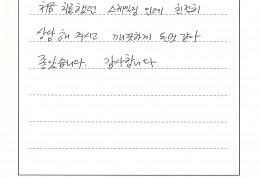 처음 치료했던 스케일링 인데 친절히
상담 해 주시고 깨끗하게 된것 같아
좋았습니다. 감사합니다